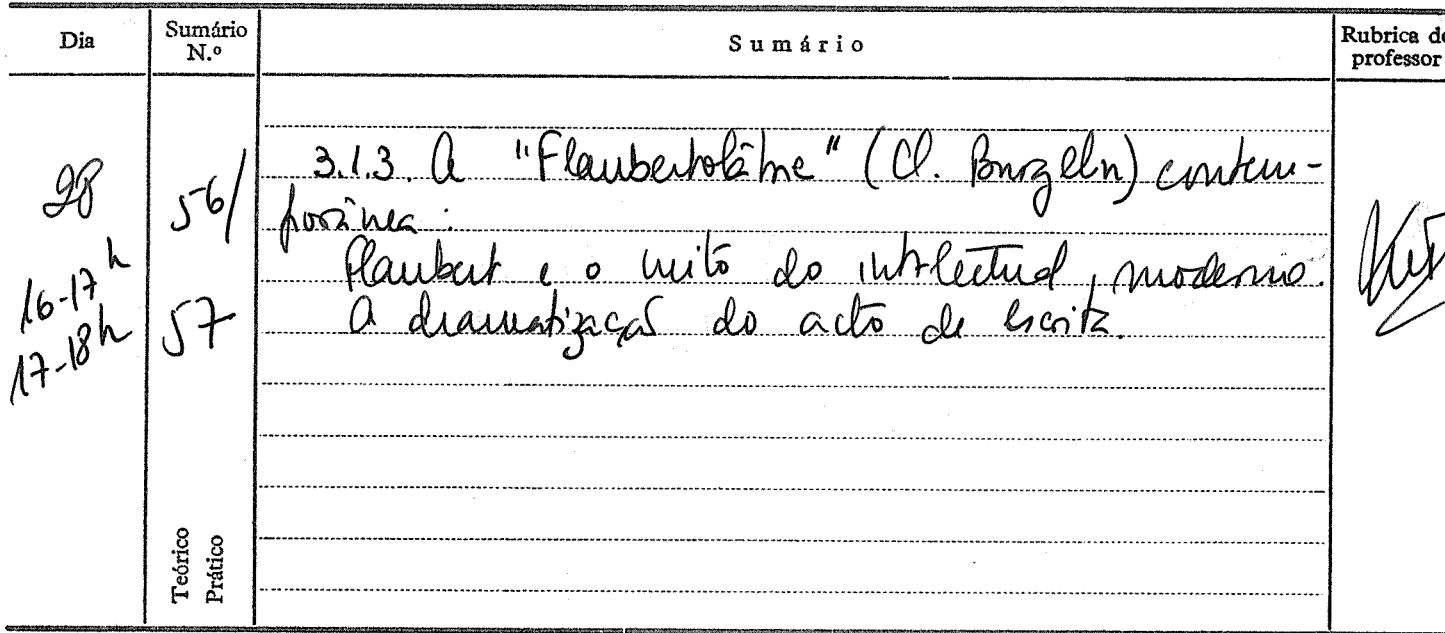 Dia
Sumário N.º
Sumário
Rubrica do professor
28
16-17h
17-18h
56/
57
3.1.3. A "Flaubertolâtrie" (Cl. Burgelin) contem-
porânea:
Flaubert e o mito do intelectual moderno.
A dramatização do acto de escrita.
Teórico
Prático